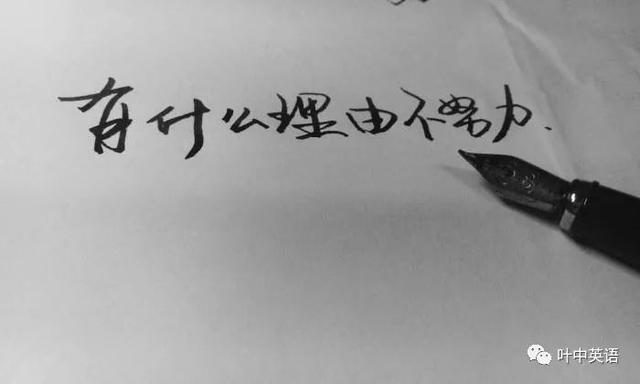 有什么理由不努力.
叶中英语